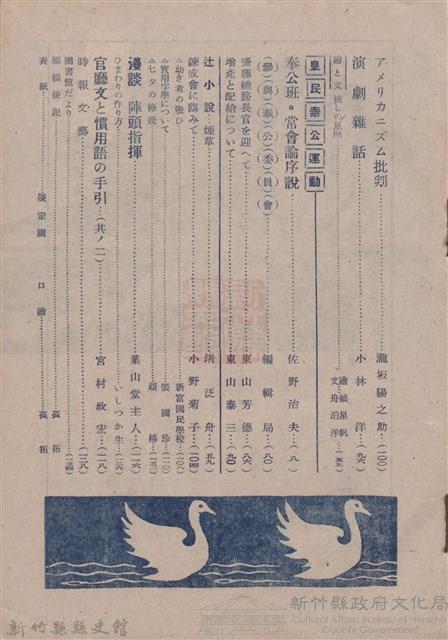 アメリカニズム批判……瀧坂陽之助…(一〇〇)
演劇雜話……小林洋…(九六)
繪と文 憾しの星座……繪 顏星帆 文 舟泊洋…(五五)
皇民奉公運動
奉公班・常會論序説……佐野治夫…(八)
(參)(與)(奉)(公)(委)(員)(會)……編輯局…(八〇)
齋藤總務長官を迎へて……東山芳德…(八六)
增產と配給について……東山泰三…(九〇)
辻小說…煙草……渚泛舟…(五九)
鍊成會に臨みて……小野菊子…(一〇四)
△幼き者の歌ひ……新富國民學校…(一〇八)
△實用字學について……張國珍…(一一〇)
△七夕の傳說……顏椿…(一一三)
漫談 陣頭指揮……葉山堂主人…(一一六)
ひまわりの作り方……いしつか生…(一三六)
官廳文と慣用語の手引…(其ノ二)……宮村政宏…(一一八)
時報文藝……(一三八)
圖書館だより
編輯後記
表紙……陳定國 口繪……孤拓
新竹縣縣史館
新竹縣政府文化局
Cultural Affairs Bureau of Hsinchu County Government